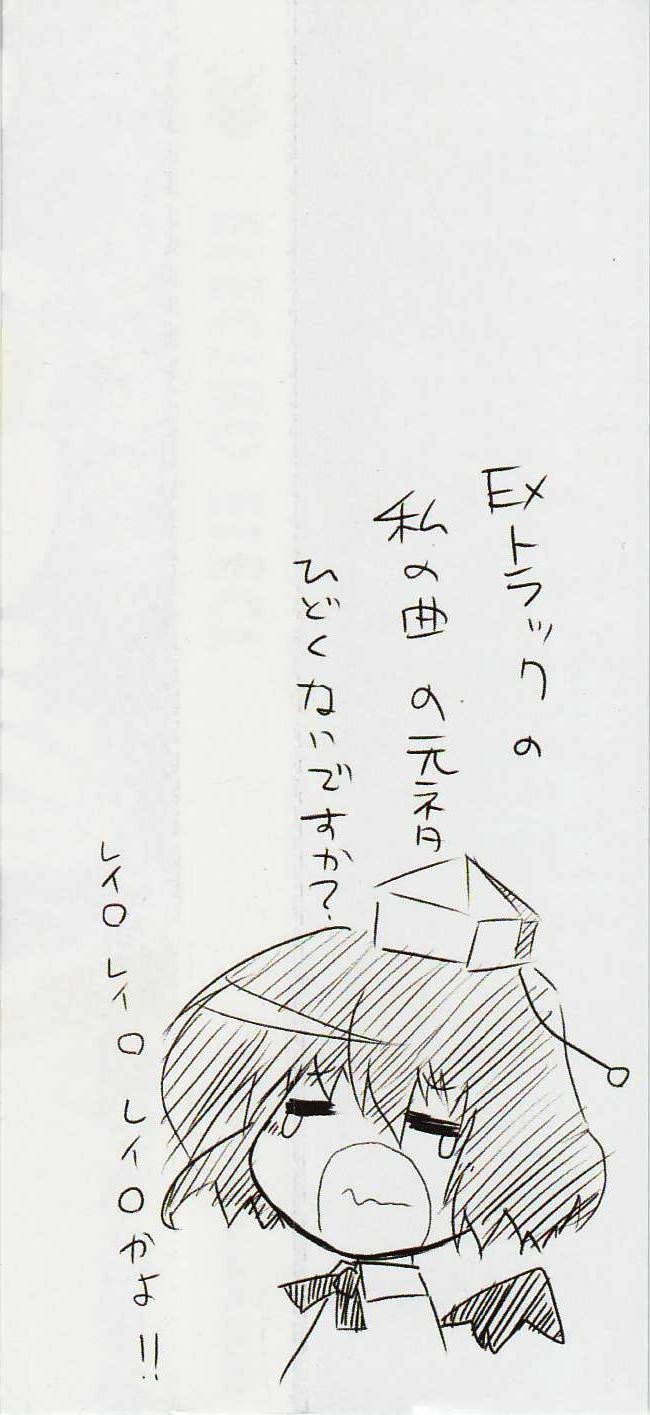 EXトラックの
私の曲の元ネタ
ひどくないですか？
レイロレイロレイロかよ!!